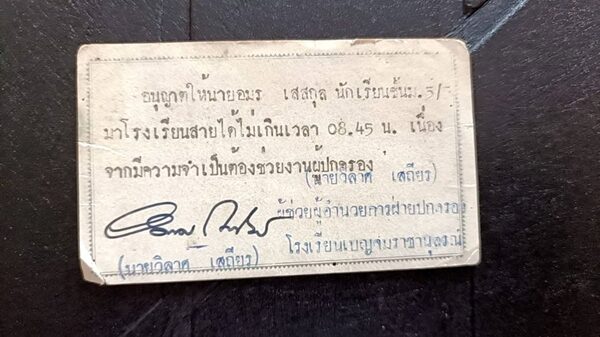 อนุญาตให้นายอมร เสสกุล นักเรียนชั้นม.5/
มาโรงเรียนสายได้ไม่เกินเวลา 08.45 น. เนื่อง
จากมีความจำเป็นต้องช่วยงานผู้ปกครอง
(นายวิลาศ เสถียร)
ผู้ช่วยผู้อำนวยการฝ่ายปกครอง
โรงเรียนเบญจมราชานุสรณ์
(นายวิลาศ เสถียร)